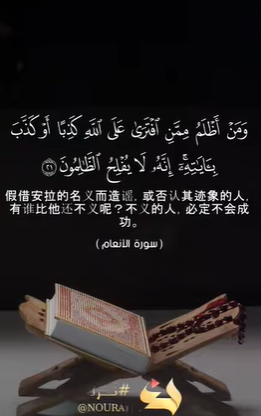 وَمَنْ أَظْلَمُ مِمَّنِ ٱفْتَرَىٰ عَلَى ٱللَّهِ كَذِبًا أَوْ كَذَّبَ
بِـَٔايَـٰتِهِۦٓ ۗ إِنَّهُۥ لَا يُفْلِحُ ٱلظَّـٰلِمُونَ ٢١
假借安拉的名义而造谣, 或否认其迹象的人,
有谁比他还不义呢？不义的人, 必定不会成
功。
( سورة الأنعام )
#نـــرد
@NOURA